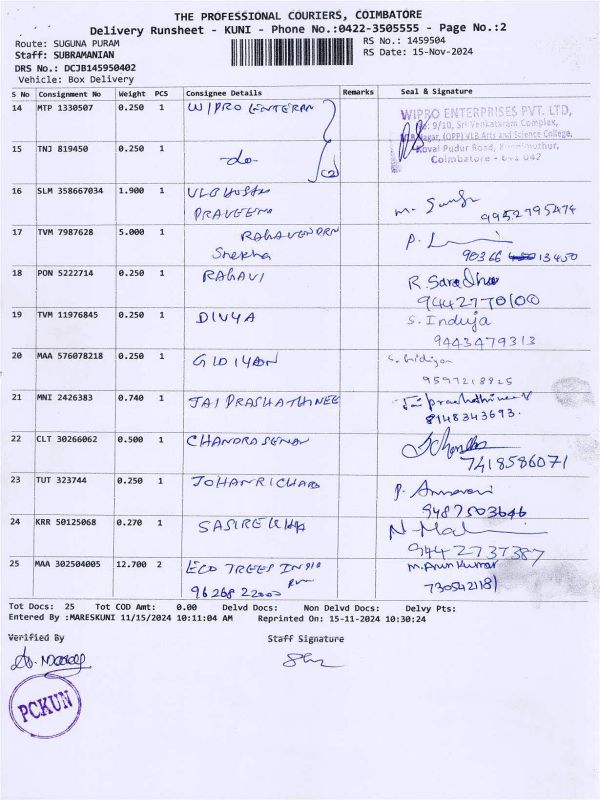 THE PROFESSIONAL COURIERS, COIMBATORE
Delivery Runsheet - KUNI - Phone No.:0422-3505555 - Page No.:2
Route: SUGUNA PURAM
RS No.: 1459504
Staff: SUBRAMANIAN
RS Date: 15-Nov-2024
DRS No.: DCJB145950402
Vehicle: Box Delivery
S No Consignment No Weight PCS Consignee Details Remarks Seal & Signature
14 MTP 1330507 0.250 1 WIPRO ENTERPN
WIPRO ENTERPRISES PVT. LTD,
9/10, Sri Venkataram Complex,
Nagar, (OPP) VLB Arts and Science College,
Kovai Pudur Road, Kuniamuthur,
Coimbatore - 641 042
15 TNJ 819450 0.250 1 -do- (2)
16 SLM 358667034 1.900 1 VLB
PRAVEENA
9952795474
17 TVM 7987628 5.000 1 RAGAVENDRN
Shekha
P.
90366 13450
18 PON 5222714 0.250 1 RAGAVI R. Saradha
9442770100
19 TVM 11976845 0.250 1 DIVYA S. Induja
9443479313
20 MAA 576078218 0.250 1 GIDIYAN
9597218825
21 MNI 2426383 0.740 1 JAI PRASHATHINEE Jai prashathinee
8148343693.
22 CLT 30266062 0.500 1 CHANDRASENAN
7418586071
23 TUT 323744 0.250 1 JOHANRICHARD P.
9487503646
24 KRR 50125068 0.270 1 SASIREKHA
9442737387
25 MAA 302504005 12.700 2 ECO TREES INDIA M. Arun Kumar
96268 22000
7305421181
Tot Docs: 25 Tot COD Amt: 0.00 Delvd Docs: Non Delvd Docs: Delvy Pts:
Entered By :MARESKUNI 11/15/2024 10:11:04 AM Reprinted On: 15-11-2024 10:30:24
Verified By Staff Signature
PCKUN